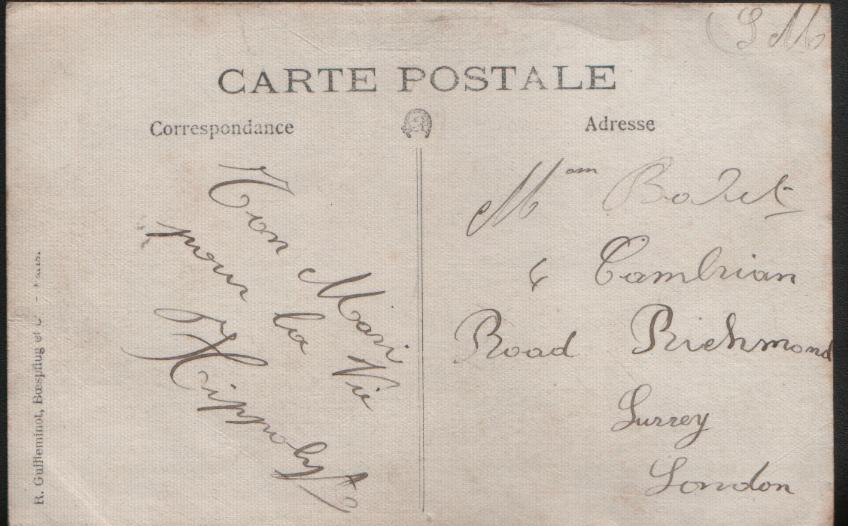 S M
CARTE POSTALE
Correspondance
Adresse
Ton Mari
pour la Vie
Hippolyte
Mam
6 Cambrian
Road Richmond
Surrey
London
R. Guilleminot, Bœspflug et C